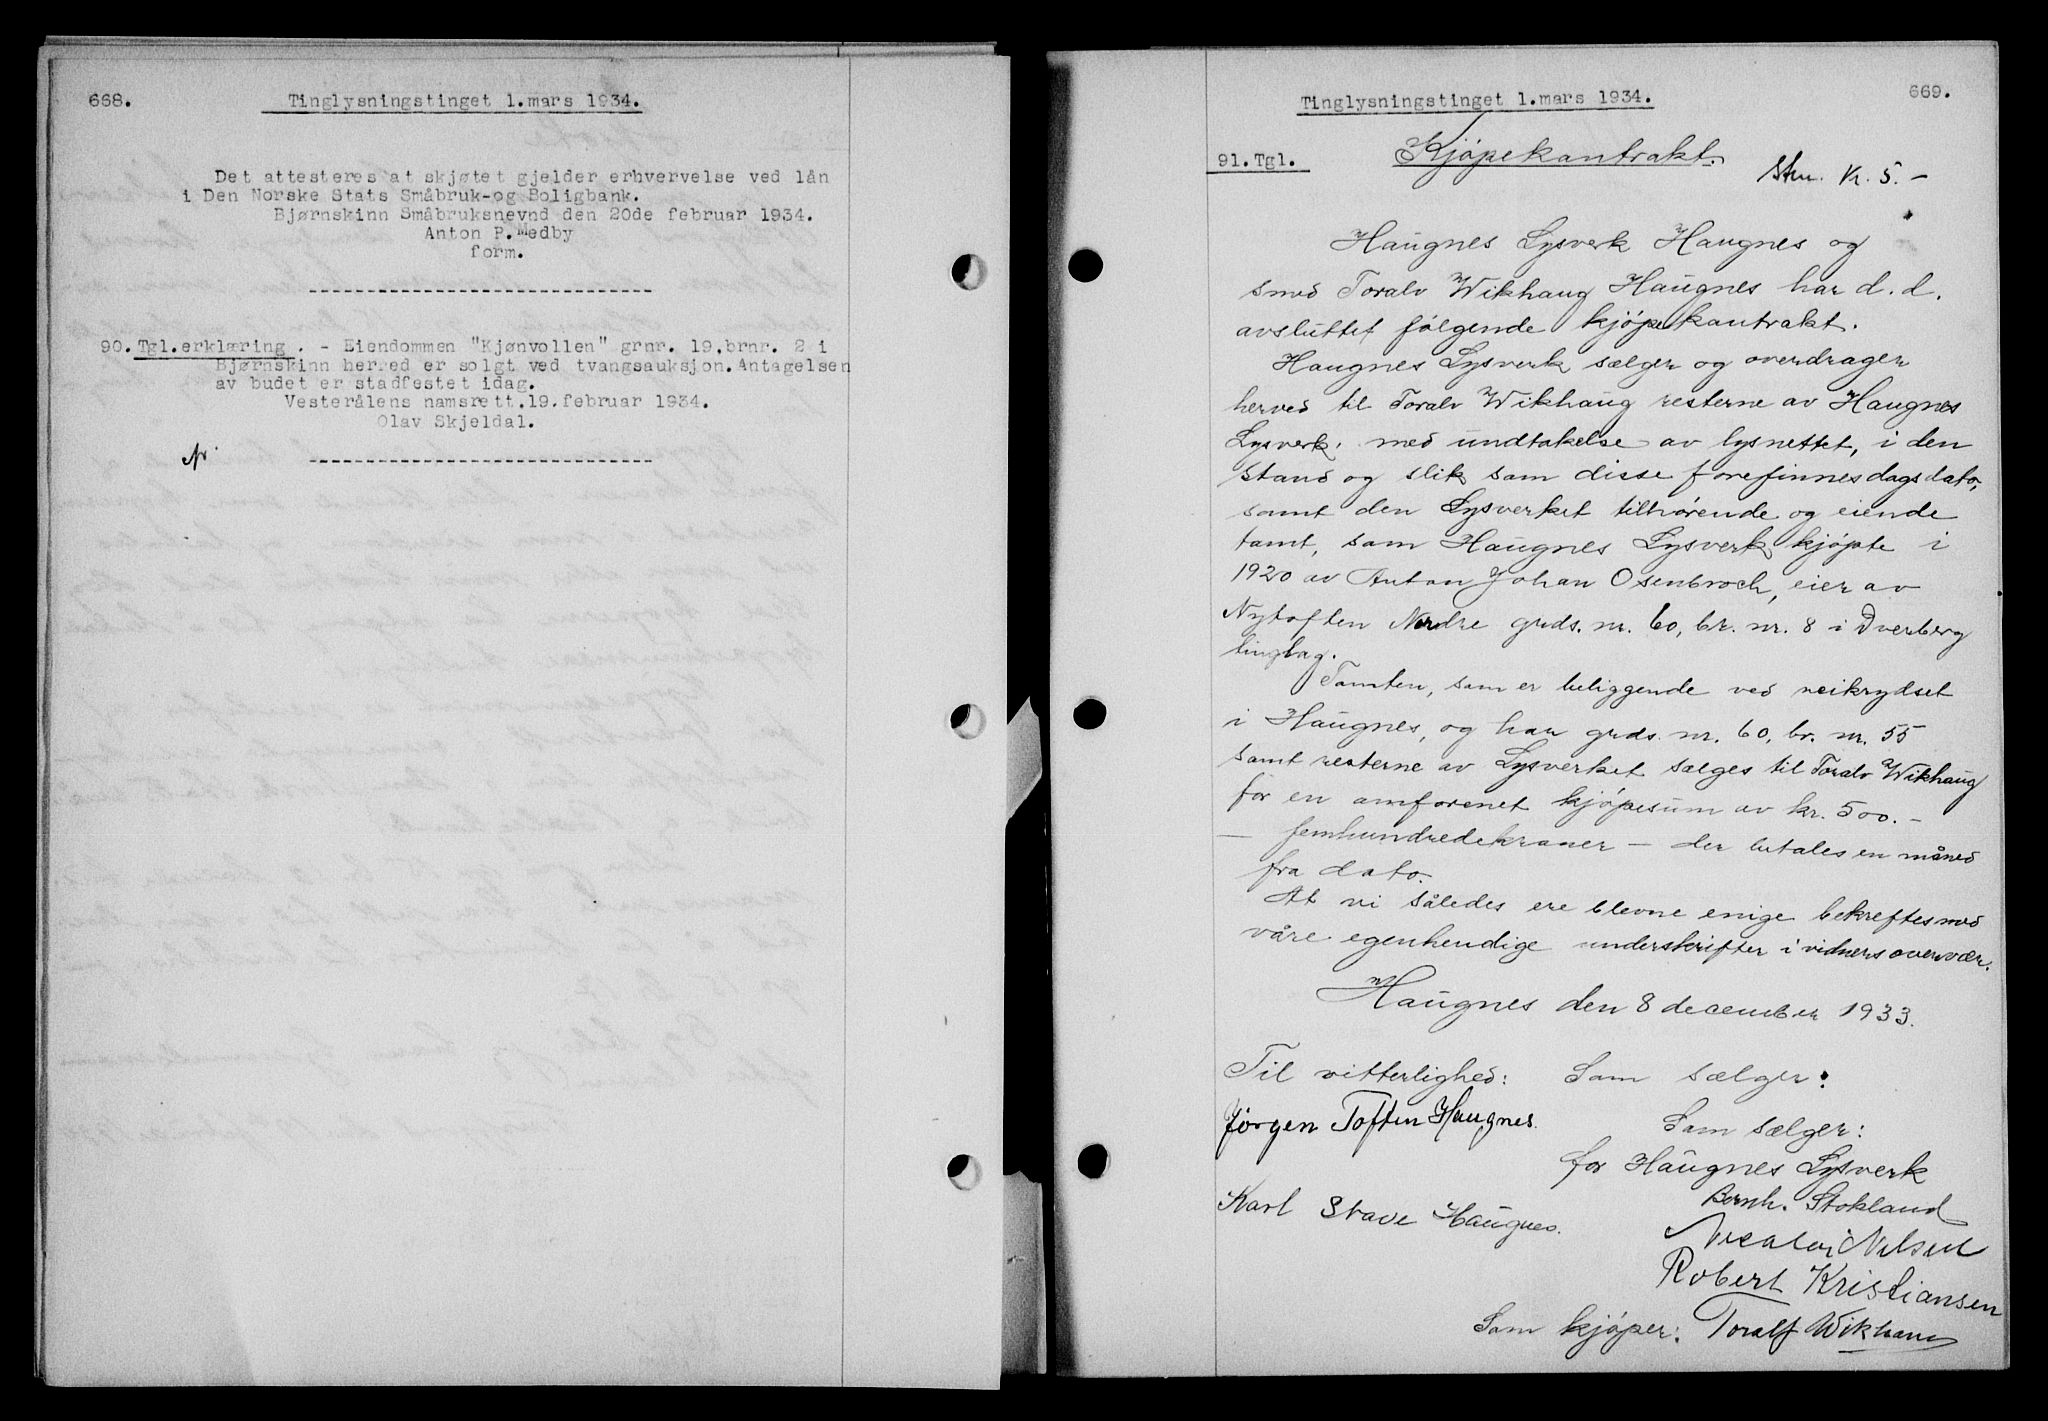 668.
Tinglysningstinget 1.mars 1934.
Det attesteres at skjøtet gjelder erhvervelse ved lån
i Den Norske Stats Småbruk-og Boligbank.
Bjørnskinn Småbruksnevnd den 20de februar 1934.
Anton P.Medby
form.
90. Tgl.erklæring. - Eiendommen "Kjønvollen" grnr. 19,brnr. 2 i
Bjørnskinn herred er solgt ved tvangsauksjon.Antagelsen
av budet er stadfestet idag.
Vesterålens namsrett.19.februar 1934.
Olav Skjeldal.
669.
Tinglysningstinget 1.mars 1934.
91.Tgl.
Kjøpekontrakt.
Stm. Kr. 5.-
Haugnes Lysverk Haugnes og
smed Toralv Wikhaug Haugnes har d.d.
avsluttet følgende kjøpekontrakt.
Haugnes Lysverk sælger og overdrager
herved til Toralv Wikhaug resterne av Haugnes
Lysverk, med undtakelse av lysnettet, i den
stand og slik som disse forefinnes dags dato,
samt den Lysverket tilhørende og eiende
tomt, som Haugnes Lysverk kjøpte i
1920 av Anton Johan Osenbroch, eier av
Nytoften Nordre grds. nr. 60, br. nr. 8 i Dverberg
tinglag.
Tomten, som er beliggende ved veikrydset
i Haugnes, og har grds. nr. 60, br. nr. 55
samt resterne av Lysverket sælges til Toralv Wikhaug
for en omforenet kjøpesum av kr. 500.-
- femhundredekroner - der betales en måned
fra dato.
At vi således ere blevne enige bekreftes med
våre egenhendige underskrifter i vidners overvær.
Haugnes den 8 december 1933.
Til vitterlighed: Som sælger:
Jörgen Toften Haugnes.
Som sælger:
for Haugnes Lysverk
Bernh. Stokland
Karl Stave Haugnes.
Nicolai Nilsen
Robert Kristiansen
Som kjøper: Toralf Wikhaug